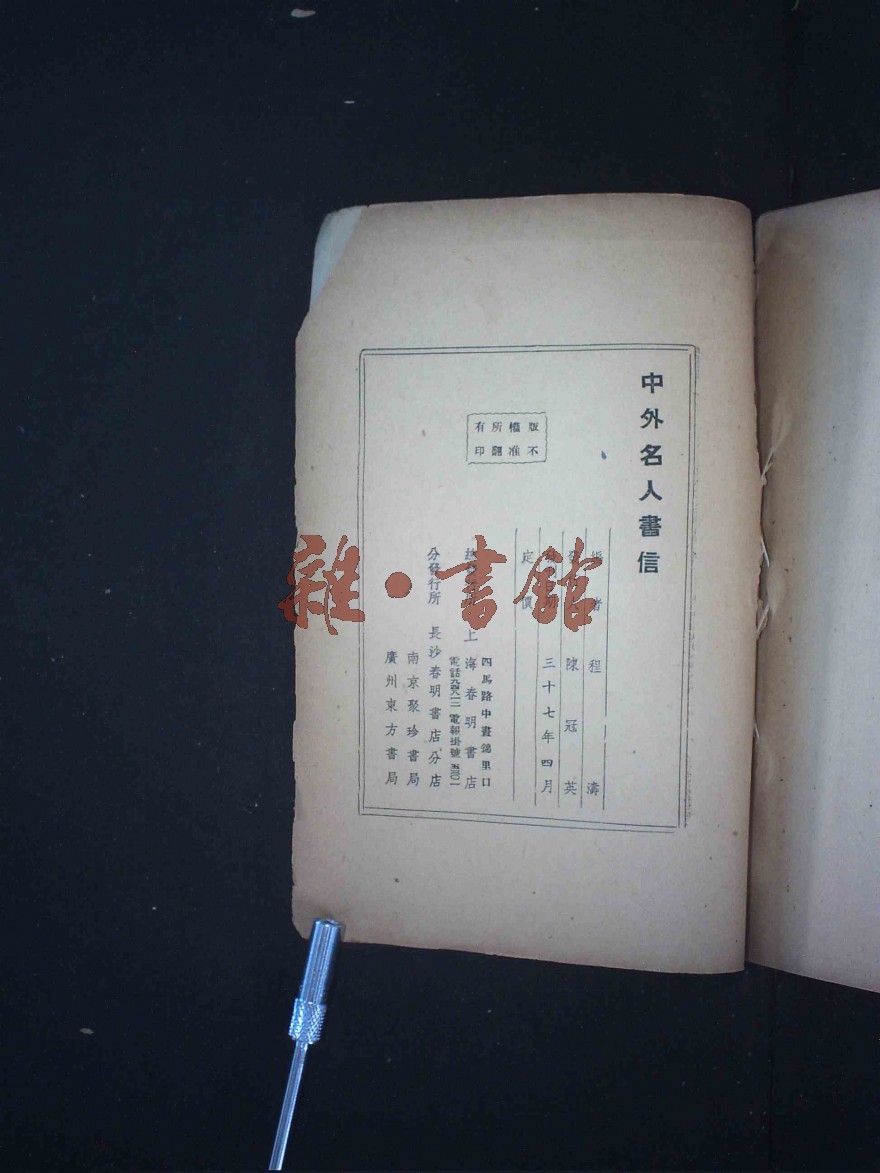 中外名人書信
版權所有
不准翻印
編者 程濤
發 人 陳冠英
三十七年四月
定價
四馬路中晝錦里口
上海春明書店
電話 電報掛號
分發行所 長沙春明書店分店
南京聚珍書局
廣州東方書局
雜·書館